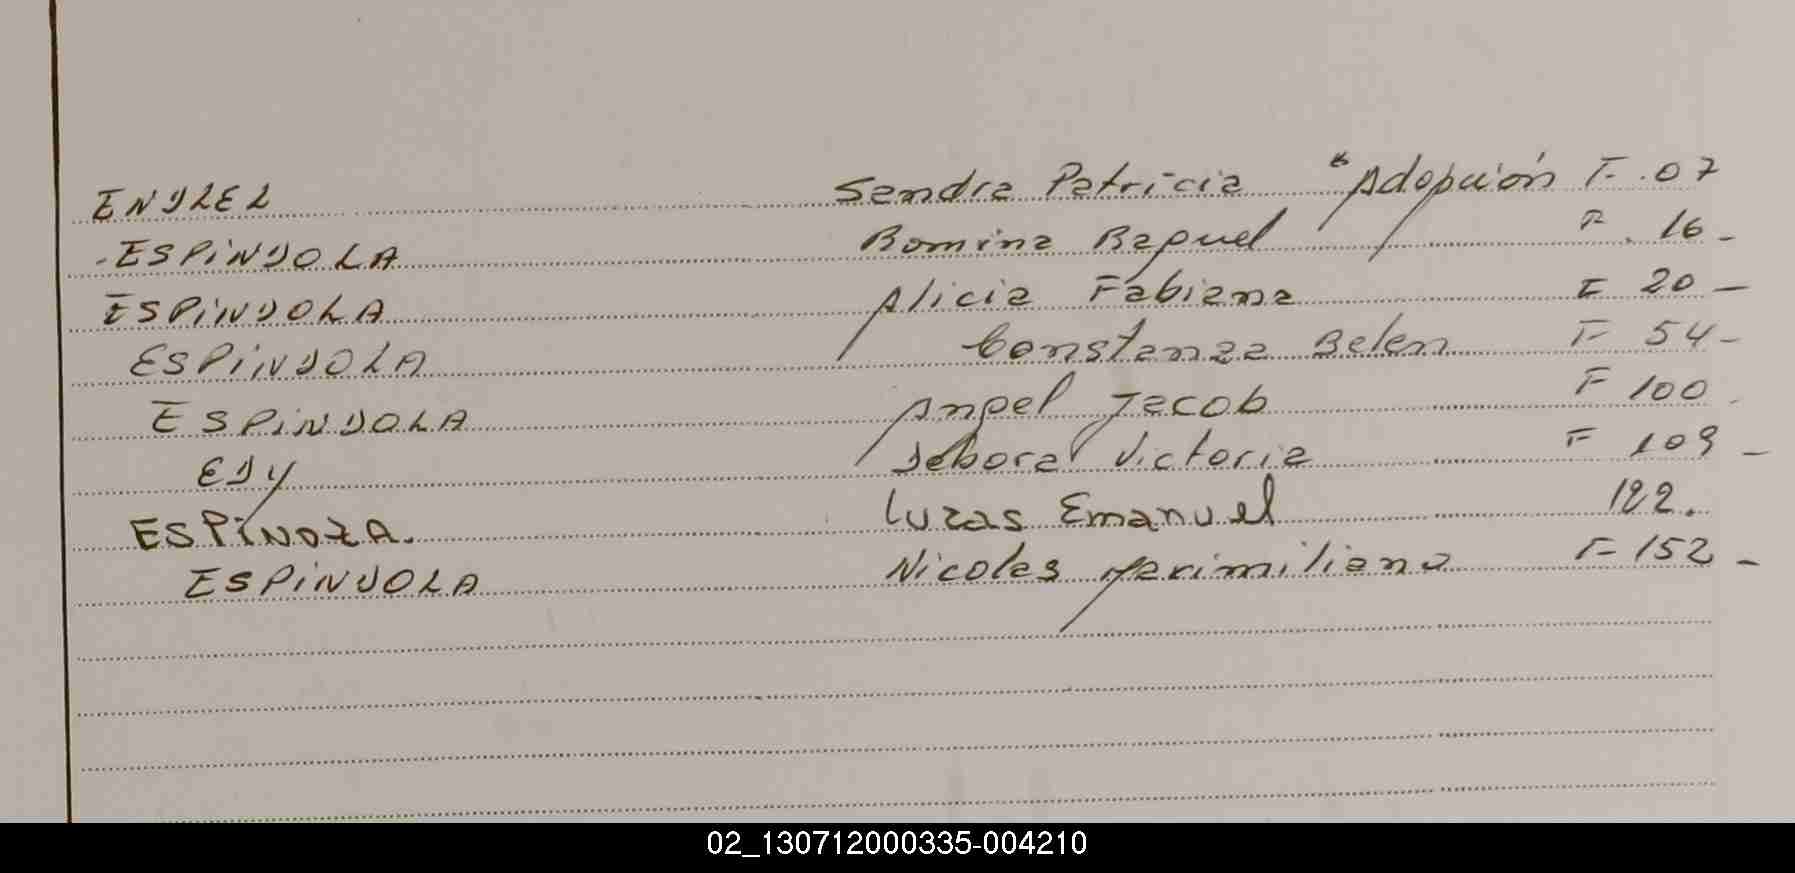 ENDLEL Sandra Patricia "Adopción F. 07
ESPiNDOLA Romina Raquel F. 16-
ESPiNDOLA Alicia Fabiana F 20-
ESPiNDOLA Constanza Belen F 54-
ESPiNDOLA Angel Jacob F 100
EDY Debora Victoria F 109-
ESPiNOZA. Lucas Emanuel 122.
ESPiNDOLA Nicolas Maximiliano F-152-
02_130712000335-004210